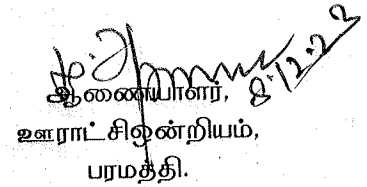 8.12.22
ஆணையாளர்,
ஊராட்சிஒன்றியம்,
பரமத்தி.